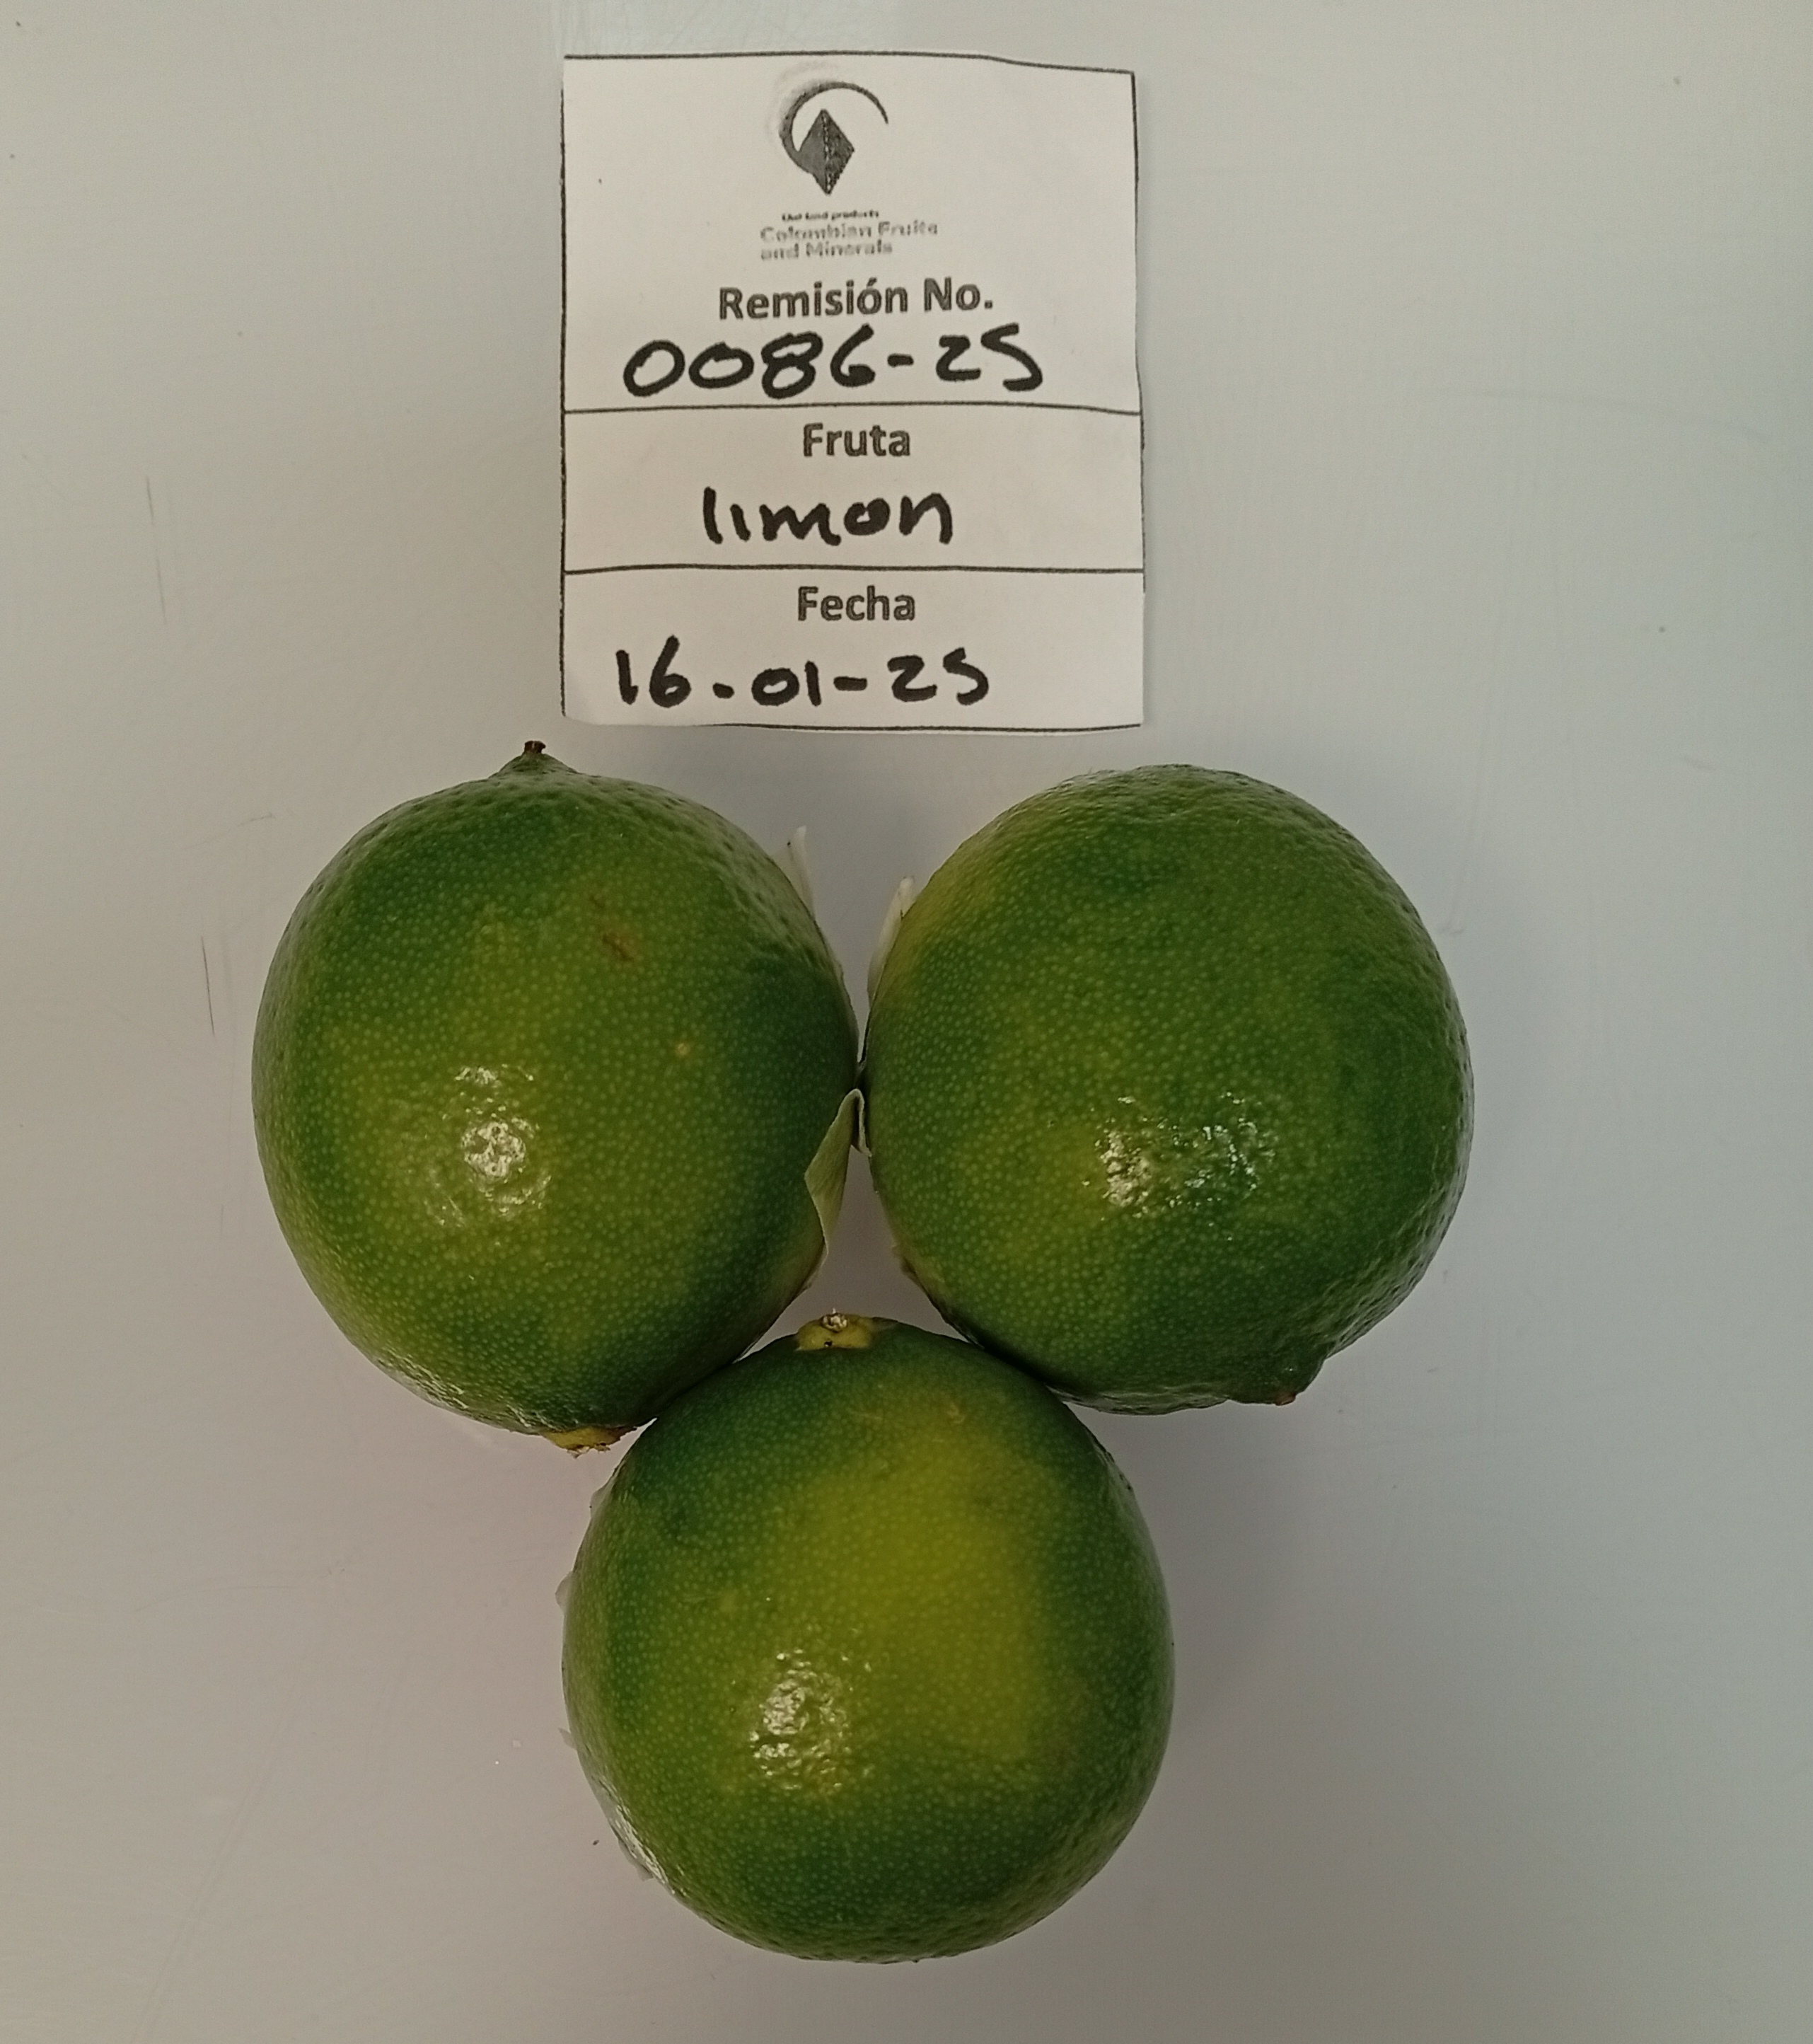 Colombian Fruits
and Minerals
Remisión No.
0086-25
Fruta
limon
Fecha
16-01-25